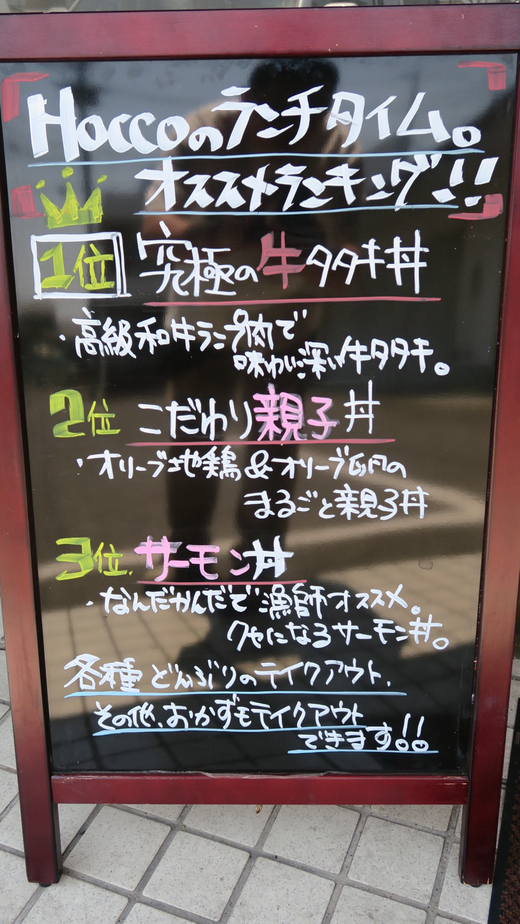 Hoccoのランチタイム。
オススメランキング!!
1位 究極の牛タタキ丼
・高級和牛ランプ肉で
味わい深い牛タタキ。
2位 こだわり親子丼
・オリーブ地鶏&オリーブ卵の
まるごと親子丼
3位.サーモン丼
・なんだかんだで漁師オススメ。
クセになるサーモン丼。
各種どんぶりのテイクアウト、
その他、おかずもテイクアウト
できます!!